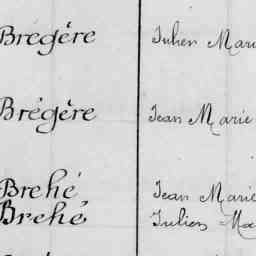 Bregère Julien Mari
Brégère Jean Marie
Brehé Jean Marie
Brehé Julien Ma